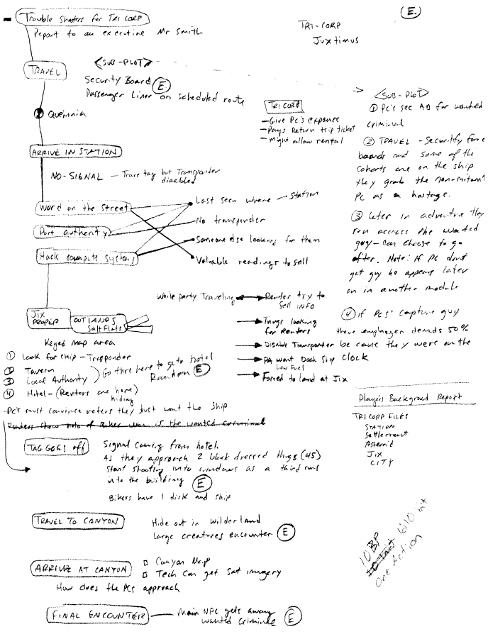 Trouble Shooters for TRI CORP
Report to an executive Mr Smith
E
TRI-CORP
Juxtimus
TRAVEL
<SUB-PLOT>
Security Board E
Passenger Liner on scheduled route
TRICORP
- Give PC's expense
- Pays Return trip ticket
- Might allow rental
<SUB-PLOT>
① PC's see AD for wanted
criminal
② TRAVEL - Security force
boards and some of the
cohorts are on the ship
they grab the
PC as a hostage.
③ Later in adventure they
run across the wanted
guy - can choose to go
after. Note: if PC don't
get guy he appears later
on in another module
④ if PCs' capture guy
their employer demands 50%
because they were on the
clock
ARRIVE IN STATION
NO-SIGNAL - Trace tag but Transponder
disabled
Word on the Street
Port authority
Hack computer systems
Last seen where - station
No transponder
Someone else looking for them
Valuable readings to sell
JIX PROPER
OUTLANDS
Salt Flats
Keyed map area
While party Traveling
Renters try to
sell INFO
Thugs looking
for Renters
Disable Transponder
PA want Dock Slip
Low Fuel
Forced to land at Jix
① Look for ship - Transponder
② Tavern
③ Local Authority
Go thru here to go to hotel
Random E
④ Hotel - (Renters are here)
hiding
- PC's must convince renters they just want the ship
TAG GOES off
Signal coming from hotel.
As they approach 2 black dressed thugs (45)
start shooting into windows as a third runs
into the building E
Bikers have 1 disk and ship
TRAVEL TO CANYON
Hide out in wilderland
Large creatures encounter E
ARRIVE AT CANYON
Canyon Map
Tech Can get Sat imagery
How does the PCs approach
FINAL ENCOUNTER
Main NPC gets away
wanted Criminal E
Players Background Report
TRICORP FILES
Station
Settlement
Asteroid
JIX
CITY
10 BP
One Action